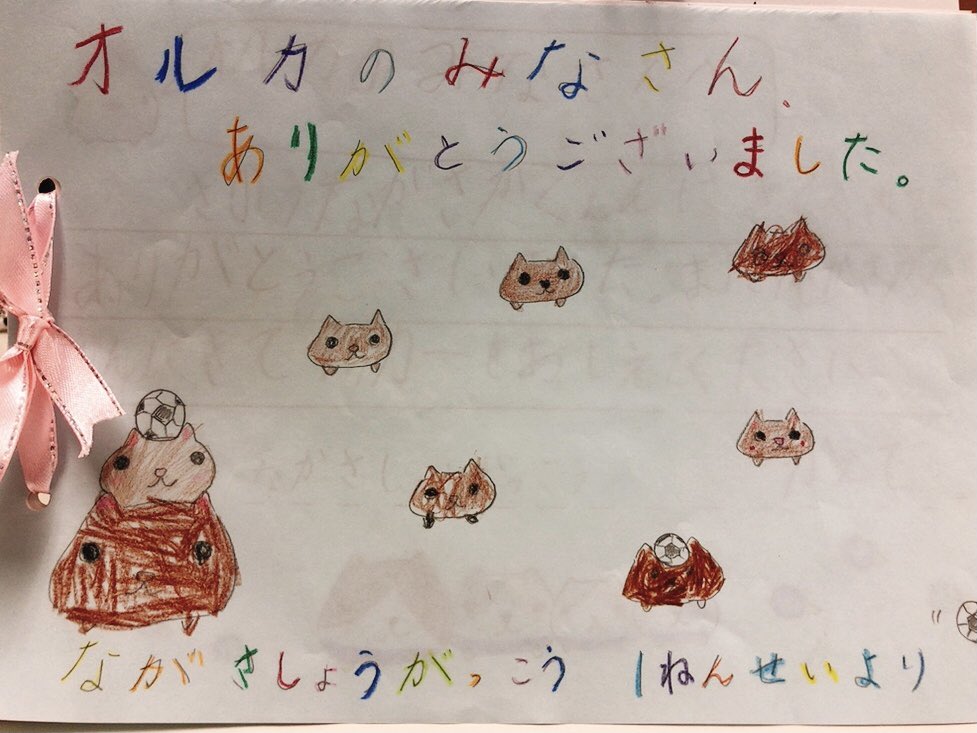 オルカのみなさん、
ありがとうございました。
ながさしょうがっこう 1ねんせいより